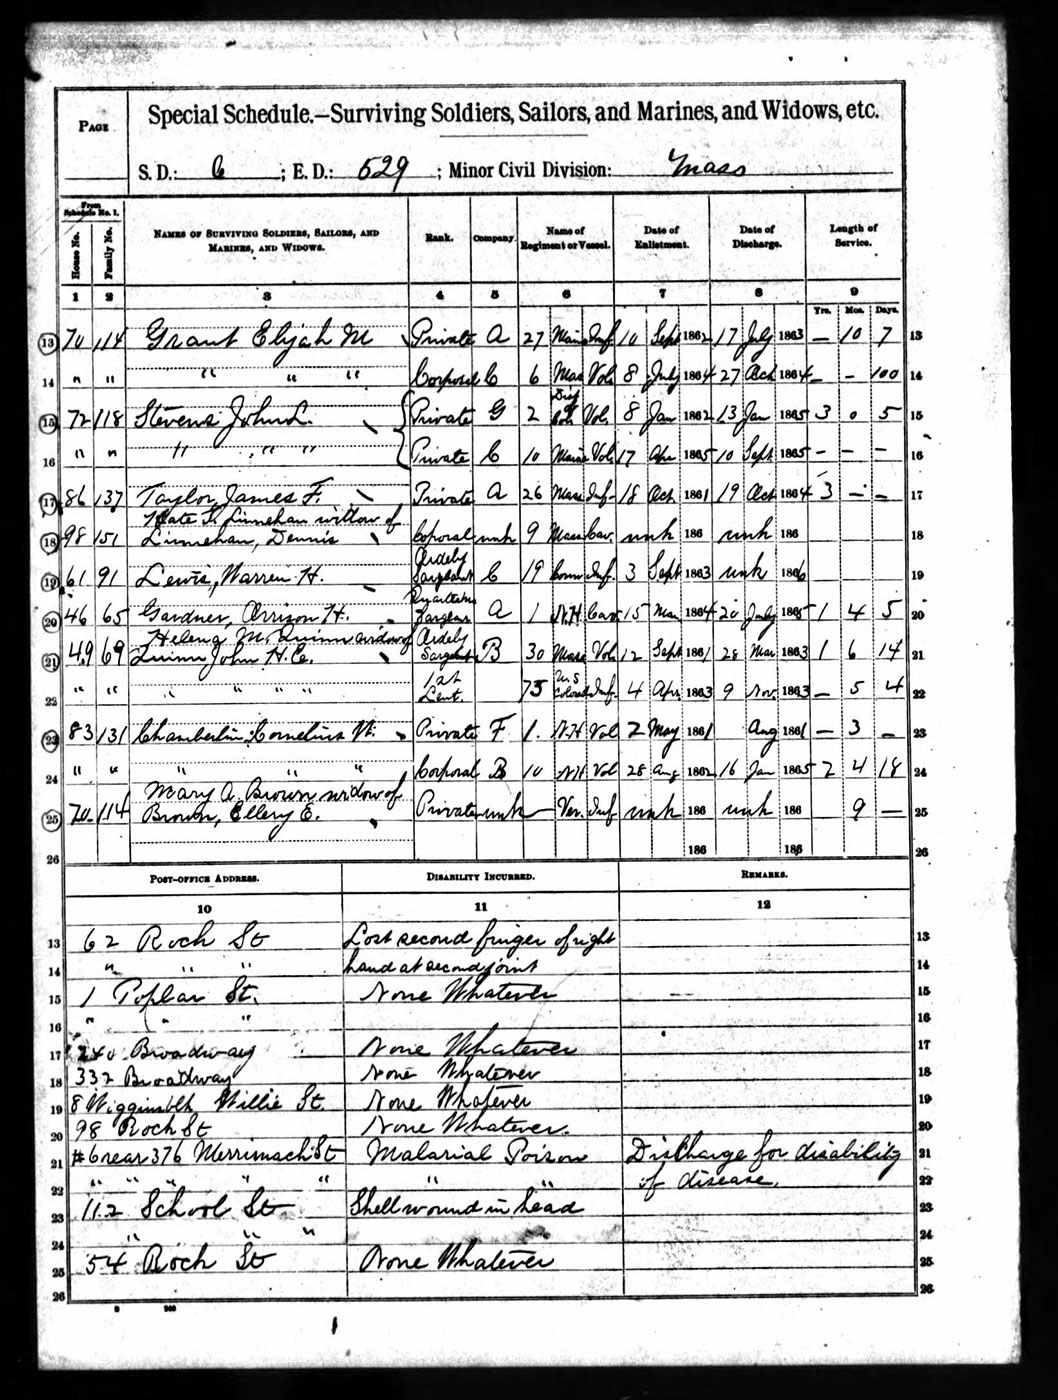 PAGE
Special Schedule.—Surviving Soldiers, Sailors, and Marines, and Widows, etc.
S. D.: 6 ; E. D.: 529 ; Minor Civil Division: Mass
From Schedule No. 1.
House No. Family No.
NAMES OF SURVIVING SOLDIERS, SAILORS, AND MARINES, AND WIDOWS.
Rank. Company. Name of Regiment or Vessel. Date of Enlistment. Date of Discharge. Length of Service.
1 2 3 4 5 6 7 8 9
Yrs. Mos. Days.
13 70 114 Grant Elijah M Private A 27 Maine Inf 10 Sept 1862 17 July 1863 — 10 7 13
14 " " " " " Corporal C 6 Mas Vol 8 July 1864 27 Oct 1864 — — 100 14
15 72 118 Stevens John L. Private G 2 Vol. 8 Jan 1862 13 Jan 1865 3 0 5 15
16 " " " " " Private C 10 Maine Vol 17 Apr 1865 10 Sept 1865 — — — 16
17 86 137 Taylor, James F. Private A 26 Mass Inf 18 Oct 1861 19 Oct 1864 3 — — 17
Kate F. Linnehan widow of
18 98 151 Linnehan, Dennis Coporal unk 9 Mass Cav. unk 186 unk 186 18
19 61 91 Lewis, Warren H. Ordely Sargeant C 19 Conn Inf. 3 Sept 1863 unk 1866 19
20 46 65 Gardner, Orrison H. Sargeant A 1 N.H Cav 15 Mar 1864 20 July 1865 1 4 5 20
Helena M. Quinn widow of
21 49 69 Quinn John H. C. Ordely Sargent B 30 Mass Vol 12 Sept 1861 28 Mar 1863 1 6 14 21
22 " " " " " " 1st Leut. 75 U.S Colored Inf. 4 Apr. 1863 9 Nov. 1863 — 5 4 22
23 83 131 Chamberlin, Cornelius W. Private F 1. N.H Vol 2 May 1861 Aug 1861 — 3 — 23
24 " " " " " Corporal B 10 NH Vol 28 Aug 1862 16 Jan 1865 2 4 18 24
Mary A. Brown widow of
25 70 114 Brown, Ellery E. Private unk — Ver. Inf unk 186 unk 186 9 — 25
26 186 186 26
POST-OFFICE ADDRESS. DISABILITY INCURRED. REMARKS.
10 11 12
13 62 Rock St Lost second finger of right 13
14 " " " hand at second joint 14
15 1 Poplar St. None Whatever — 15
16 " " " 16
17 240 Broadway None Whatever 17
18 332 Broadway None Whatever 18
19 8 Willie St. None Whatever 19
20 98 Rock St None Whatever. 20
21 #6 rear 376 Merrimack St Malarial Poison Discharge for disability 21
22 " " " " " " " of disease. 22
23 112 School St Shell wound in head 23
24 " " " 24
25 54 Rock St None Whatever 25
26 26